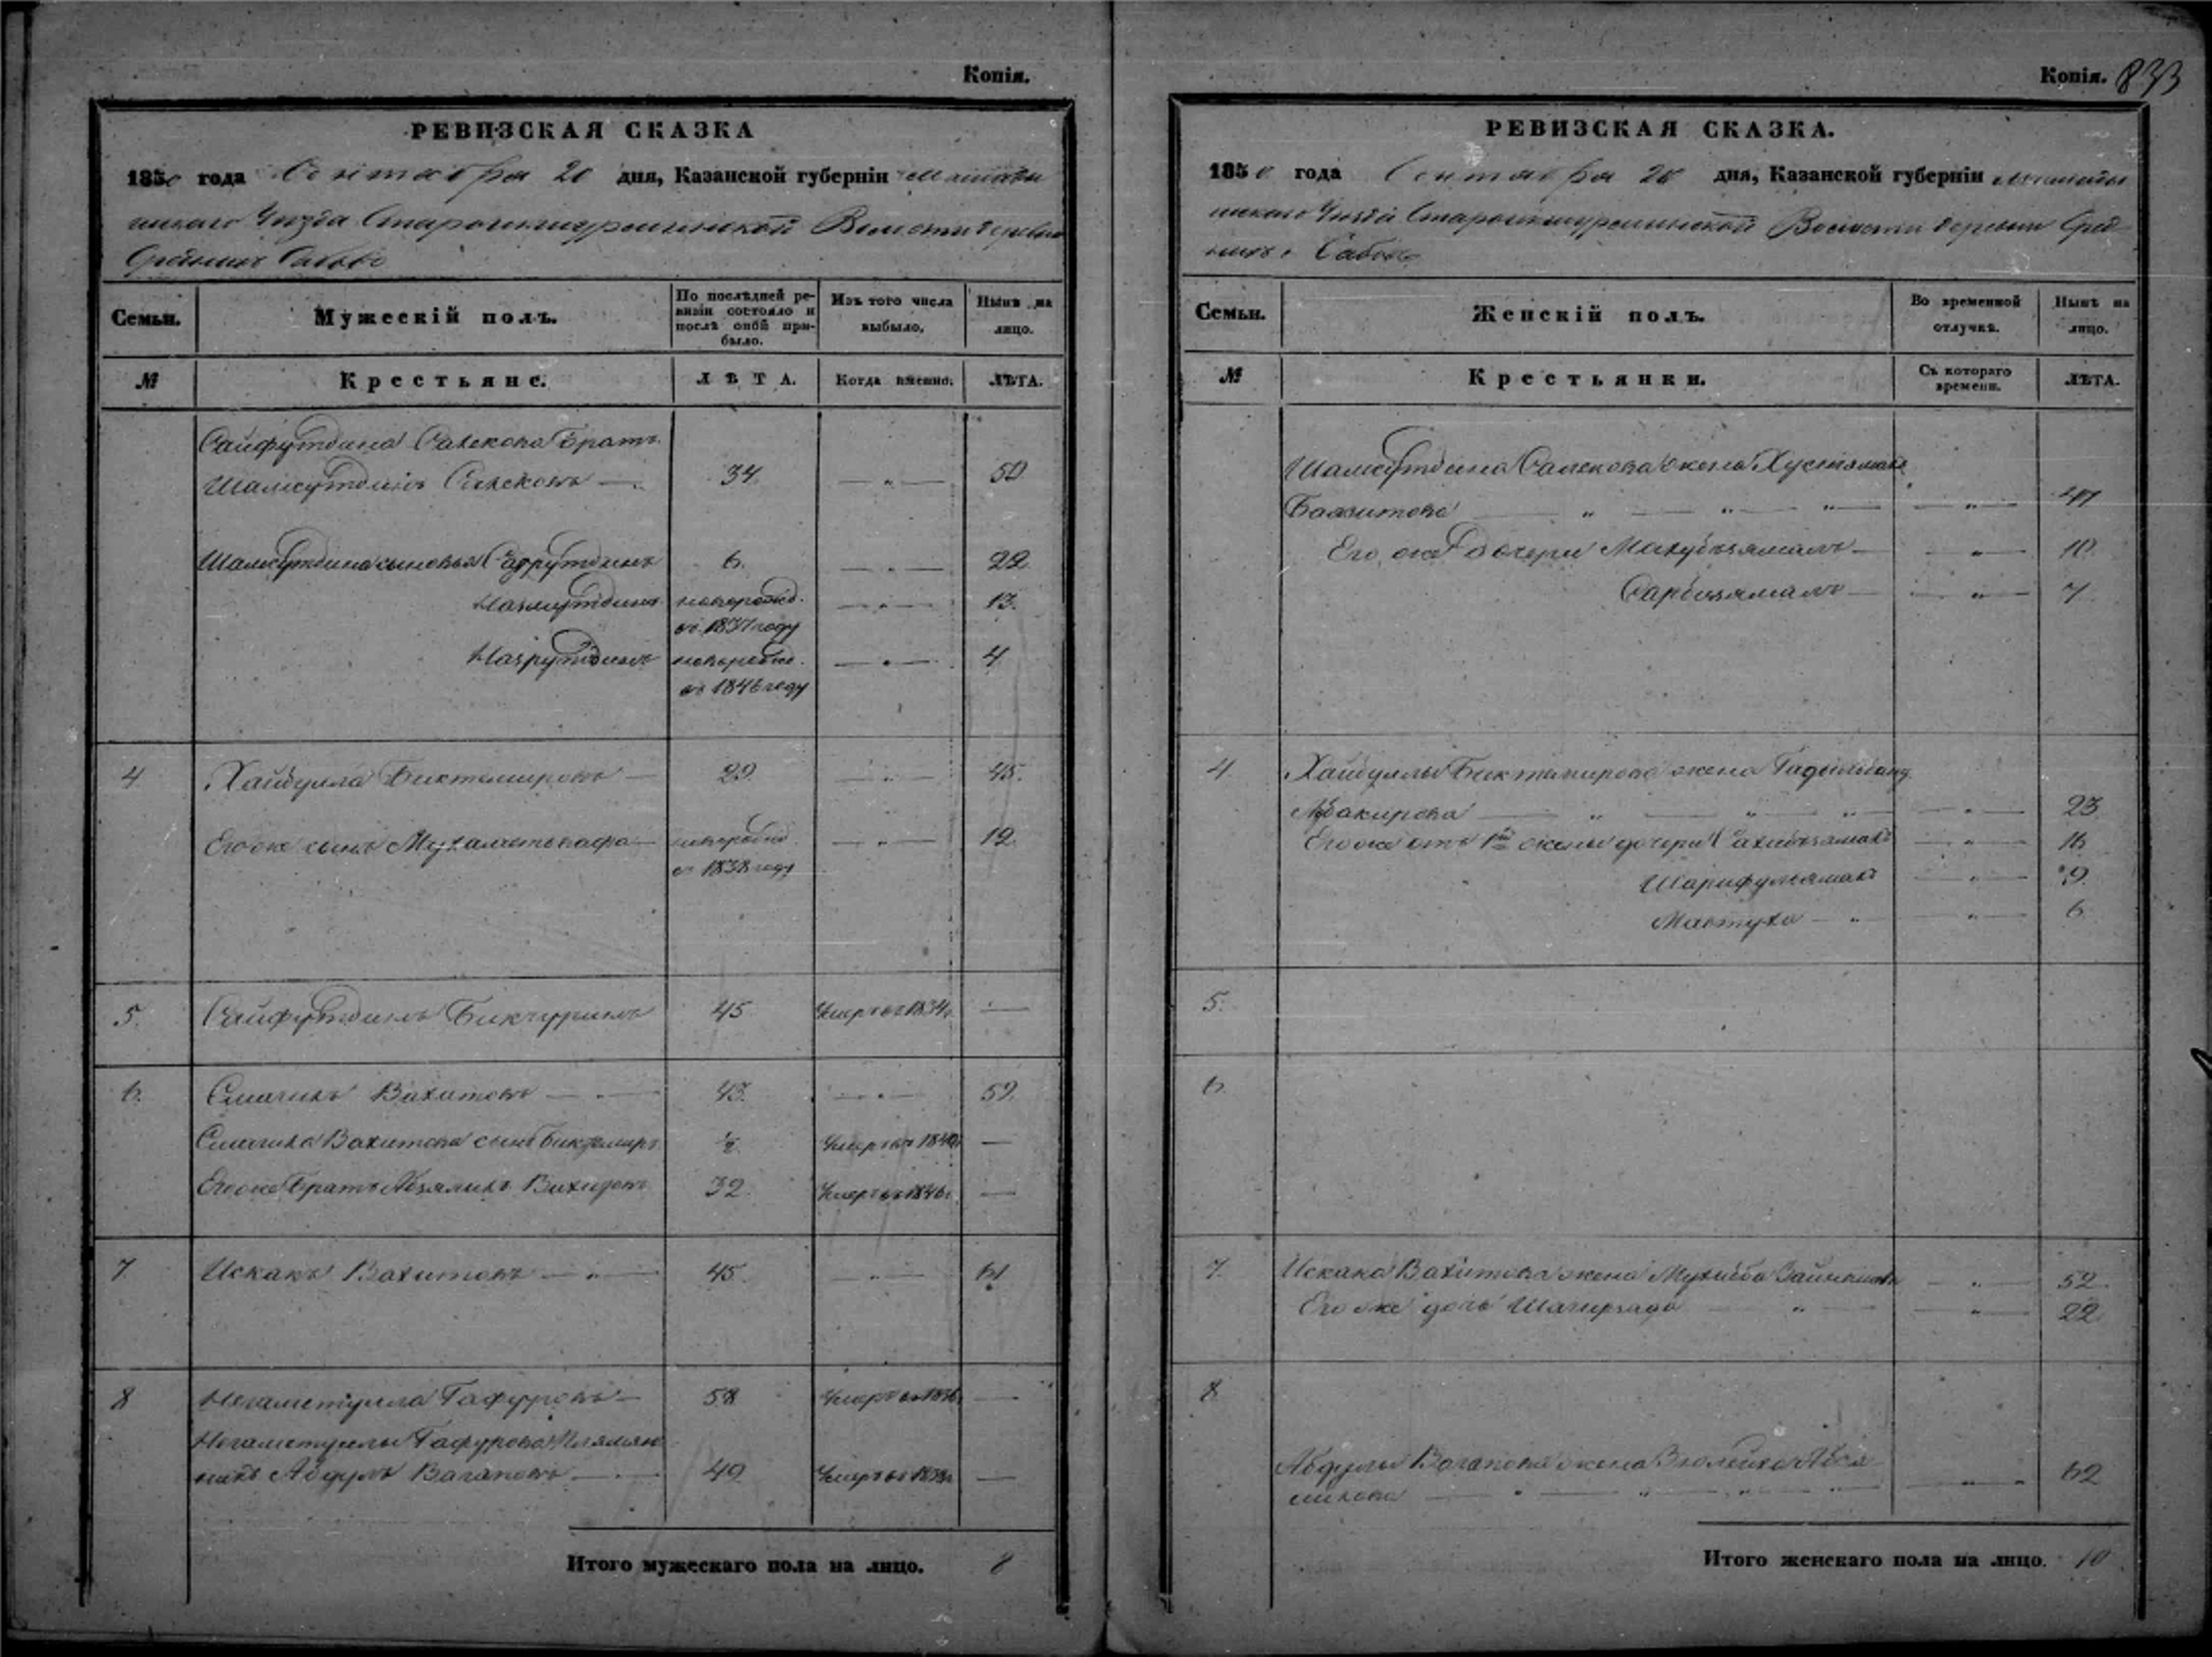 Копія.
РЕВИЗСКАЯ СКАЗКА
1850 года Сентября 20 дня, Казанской губерніи Мамады
шскаго Уезда Староикшурминской Волости деревни
Среднихъ Сабовъ
Семьи.
Мужескій полъ.
По послѣдней ре-
визіи состояло и
послѣ оной при-
было.
Изъ того числа
выбыло.
Нынѣ на
лицо.
№
Крестьяне.
ЛѢТА.
Когда именно.
ЛѢТА.
Сайфутдина Салекова братъ
Шамсутдинъ Салековъ 34 50
Шамсутдина сыновья Садрутдинъ 6. 22
Назмутдинъ новорожд. 13.
въ 1837 году
Назрутдинъ новорожд. 4
въ 1846 году
4 Хайбулла Биктемировъ 29 45.
Его же сынъ новорожд. 12
въ 1838 году
5. Сайфутдинъ 45 Умеръ въ 1834г.
6. Смагилъ Вахитовъ 43. 59.
Смагила Вахитова сынъ Биктемиръ ½ Умеръ въ
Его же братъ Абзялилъ Вахитовъ 32 Умеръ въ 1846г.
7 Искакъ Вахитовъ 45. 61
8 Негаметулла Гафуровъ 58 Умеръ въ
Негаметуллы Гафурова племян
никъ Абдулъ Вагаповъ 49 Умеръ въ
Итого мужескаго пола на лицо. 8
Копія. 833
РЕВИЗСКАЯ СКАЗКА.
1850 года Сентября 20 дня, Казанской губерніи Мамады
шскаго Уезда Староикшурминской Волости деревни Сред
нихъ Сабовъ
Семьи.
Женскій полъ.
Во временной
отлучкѣ.
Нынѣ на
лицо.
№
Крестьянки.
Съ котораго
времени.
ЛѢТА.
Шамсутдина Салекова жена
Баязитова 47
Его же дочери Махубзямалъ 10.
Сарбизямалъ 7
4 Хайбуллы Биктимирова жена
Абакирова 23
Его же отъ 1й жены дочери 16
9
Мастуха 6
5.
6.
7. Искака Вахитова жена Мухиба 52
Его же дочь 22
8
Абдула Вагапова жена Зюлейха Абзя
лилова 62
Итого женскаго пола на лицо. 10